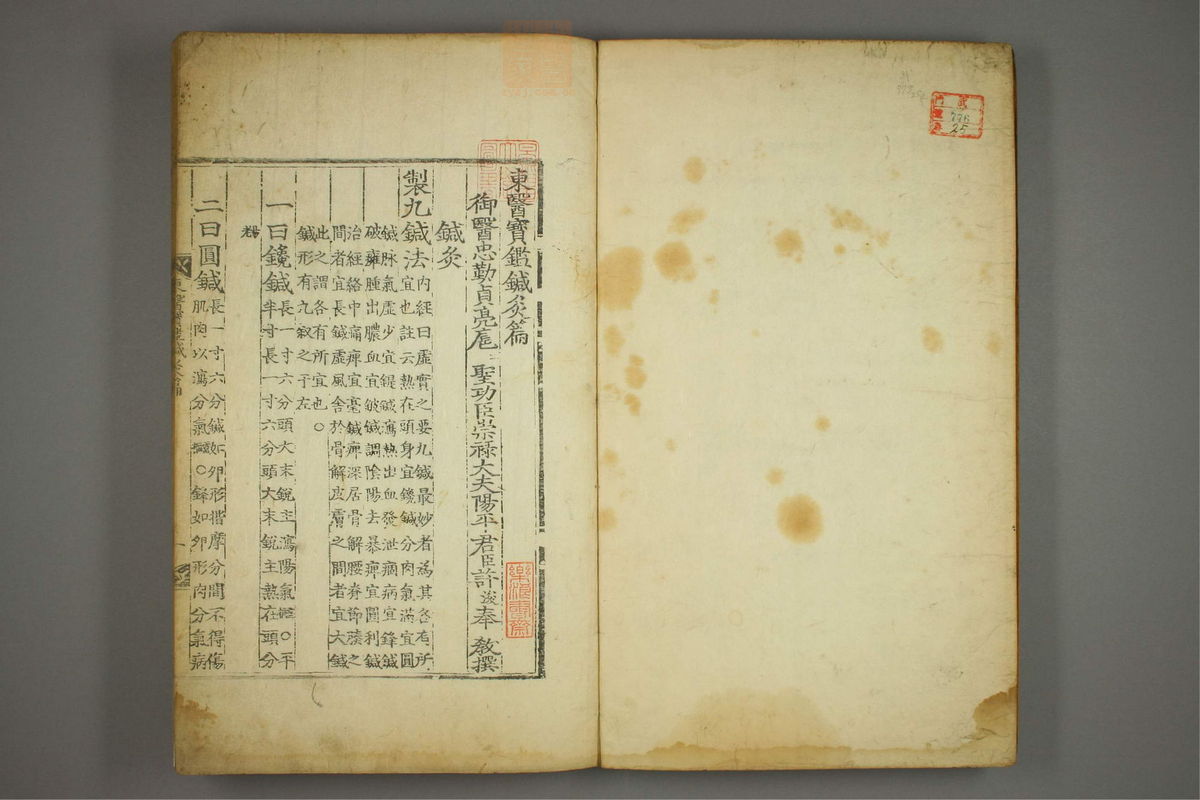 東醫寶鑑鍼灸篇
御醫忠勤貞亮扈聖功臣崇祿大夫陽平君臣許浚奉 敎撰
鍼灸
製九鍼法
內經曰虛實之要九鍼最妙者爲其各有所
宜也註云熱在頭身宜鑱鍼分肉氣滿宜圓
鍼脉氣虛少宜鍉鍼瀉熱出血發泄痼病宜鋒鍼
破癰腫出膿血宜鈹鍼調陰陽去暴痺宜圓利鍼
治經絡中痛痺宜毫鍼痺深居骨解腰脊節腠之
間者宜長鍼虛風舍於骨解皮膚之間者宜大鍼
此之謂各有所宜也○
鍼形有九敍之于左
一曰鑱鍼
長一寸六分頭大末銳主瀉陽氣○平
半寸長一寸六分頭大末銳主熱在頭分
二曰圓鍼
長一寸六分鍼如卵形揩摩分間不得傷
肌肉以瀉分氣○鋒如卵形肉分氣病
776
25